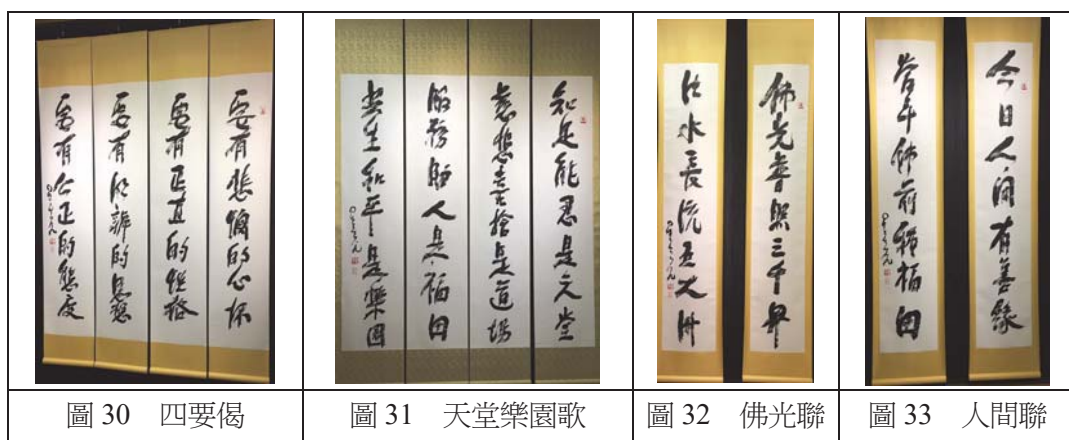 要有悲憫的心怀
要有正直的性格
要有明辨的思想
要有公正的態度
知足能忍是天堂
慈悲喜捨是道場
服務助人是福田
共生和平是樂園
佛光普照三千界
法水長流五大洲
今日人間有善緣
昔年佛前種福田
圖 30 四要偈
圖 31 天堂樂園歌
圖 32 佛光聯
圖 33 人間聯